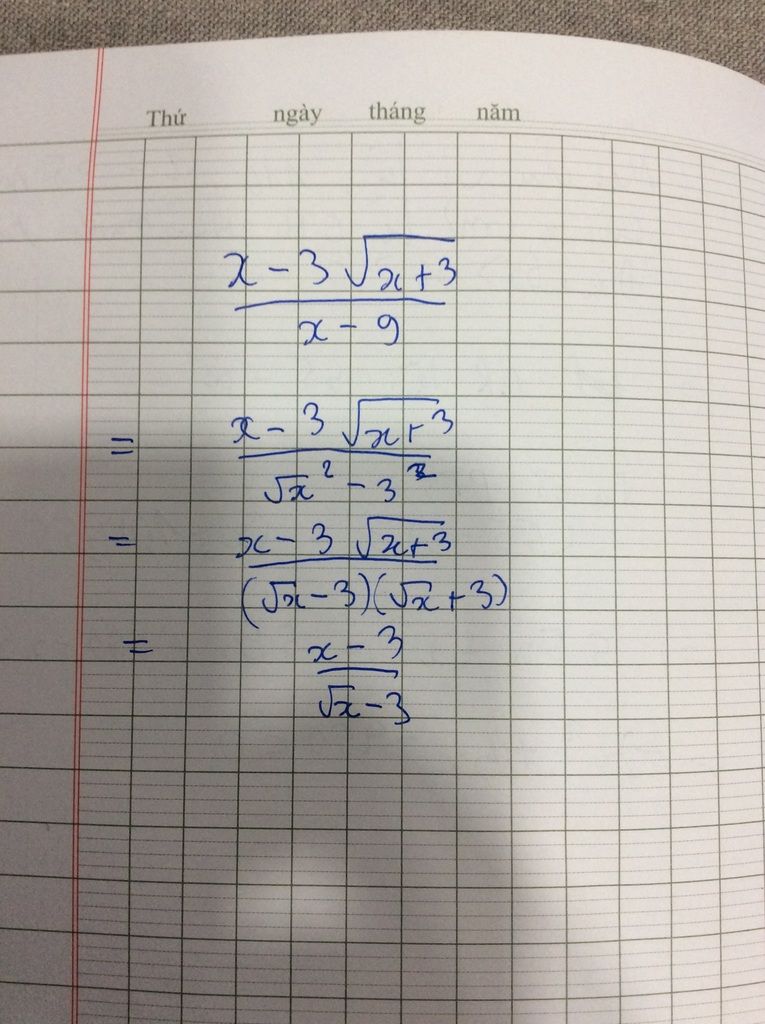 Thứ ngày tháng năm
x - 3 √(x + 3)
x - 9
= x - 3 √(x + 3)
√x² - 3²
= x - 3 √(x + 3)
(√x - 3)(√x + 3)
= x - 3
√x - 3